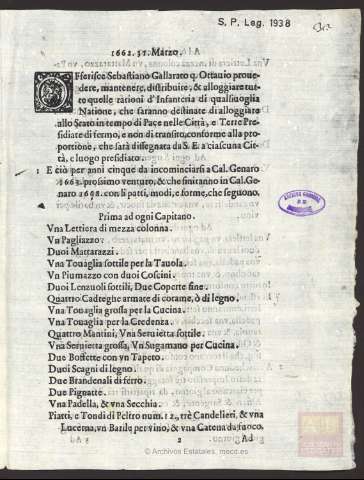 S. P. Leg. 1938
1662. 31. Marzo.
OFferisce Sebastiano Gallarato q. Ottauio proue-
dere, mantenere, distribuire, & alloggiare tut-
te quelle rationi d'Infanteria di qualsiuoglia
Natione, che saranno destinate di alloggiare
allo Stato in tempo di Pace nelle Città, e Terre Pre-
sidiate di fermo, e non di transito, conforme alla pro-
portione, che sarà dissegnata da S. E. a ciascuna Cit-
tà, e luogo presidiato.
1 E ciò per anni cinque da incominciarsi a Cal. Genaro
1663. prossimo venturo, & che finiranno in Cal. Ge-
naro 1698. con li patti, modi, e forme, che seguono.
Prima ad ogni Capitano.
Vna Lettiera di mezza colonna.
Vn Pagliazzo.
Duoi Mattarazzi.
Vna Touaglia sottile per la Tauola.
Vn Piumazzo con duoi Coscini.
Duoi Lenzuoli sottili, Due Coperte fine.
Quattro Cadreghe armate di corame, ò di legno.
Vna Touaglia grossa per la Cucina.
Vna Touaglia per la Credenza.
Quattro Mantini, Vna Seruietta sottile.
Vna Seruietta grossa, Vn Sugamano per Cucina.
Due Boffette con vn Tapeto.
Duoi Scagni di legno.
Due Brandenali di ferro.
Due Pignatte.
Vna Padella, & vna Secchia.
Piatti, e Tondi di Peltro num. 12., trè Candelieri, & vna
Lucerna, vn Barile per vino, & vna Catena da fuoco.
2 Ad
© Archivos Estatales, mecd.es